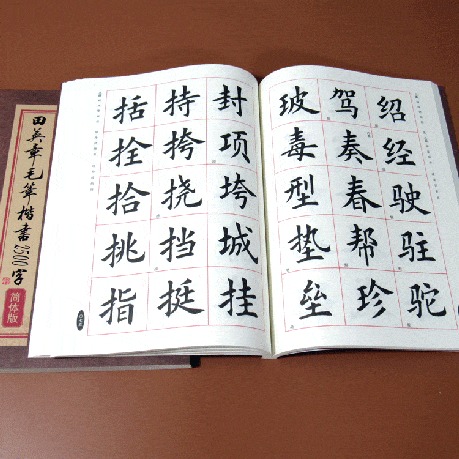 田英章毛筆楷書2500字
简体版
绍经驶驻驼
驾奏春帮珍
玻毒型垫垒
封项垮城挂
持挎挠挡挺
括拴拾挑指